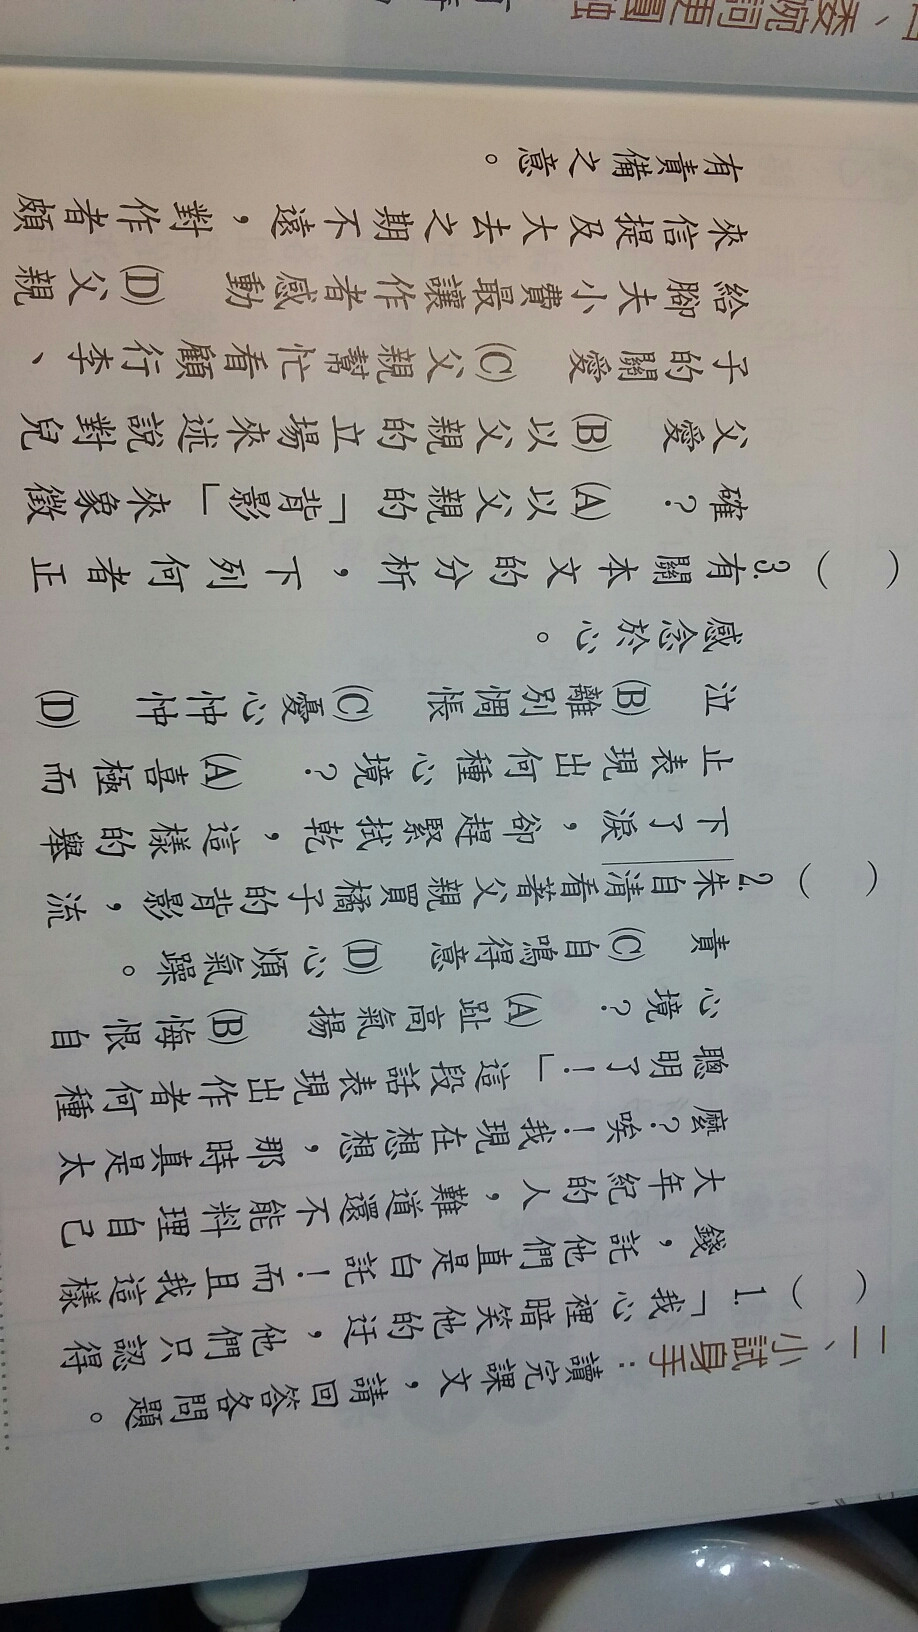 二、小試身手：讀完課文，請回答各問題。
（　）1.「我心裡暗笑他的迂，他們只認得
錢，託他們直是白託！而且我這樣
大年紀的人，難道還不能料理自己
麼？唉！我現在想想，那時真是太
聰明了！」這段話表現出作者何種
心境？　(A)趾高氣揚　(B)悔恨自
責　(C)自鳴得意　(D)心煩氣躁。
（　）2.朱自清看著父親買橘子的背影，流
下了淚，卻趕緊拭乾，這樣的舉
止表現出何種心境？　(A)喜極而
泣　(B)離別惆悵　(C)憂心忡忡　(D)
感念於心。
（　）3.有關本文的分析，下列何者正
確？　(A)以父親的「背影」來象徵
父愛　(B)以父親的立場來述說對兒
子的關愛　(C)父親幫忙看顧行李、
給腳夫小費最讓作者感動　(D)父親
來信提及大去之期不遠，對作者頗
有責備之意。
委婉詞更圓融